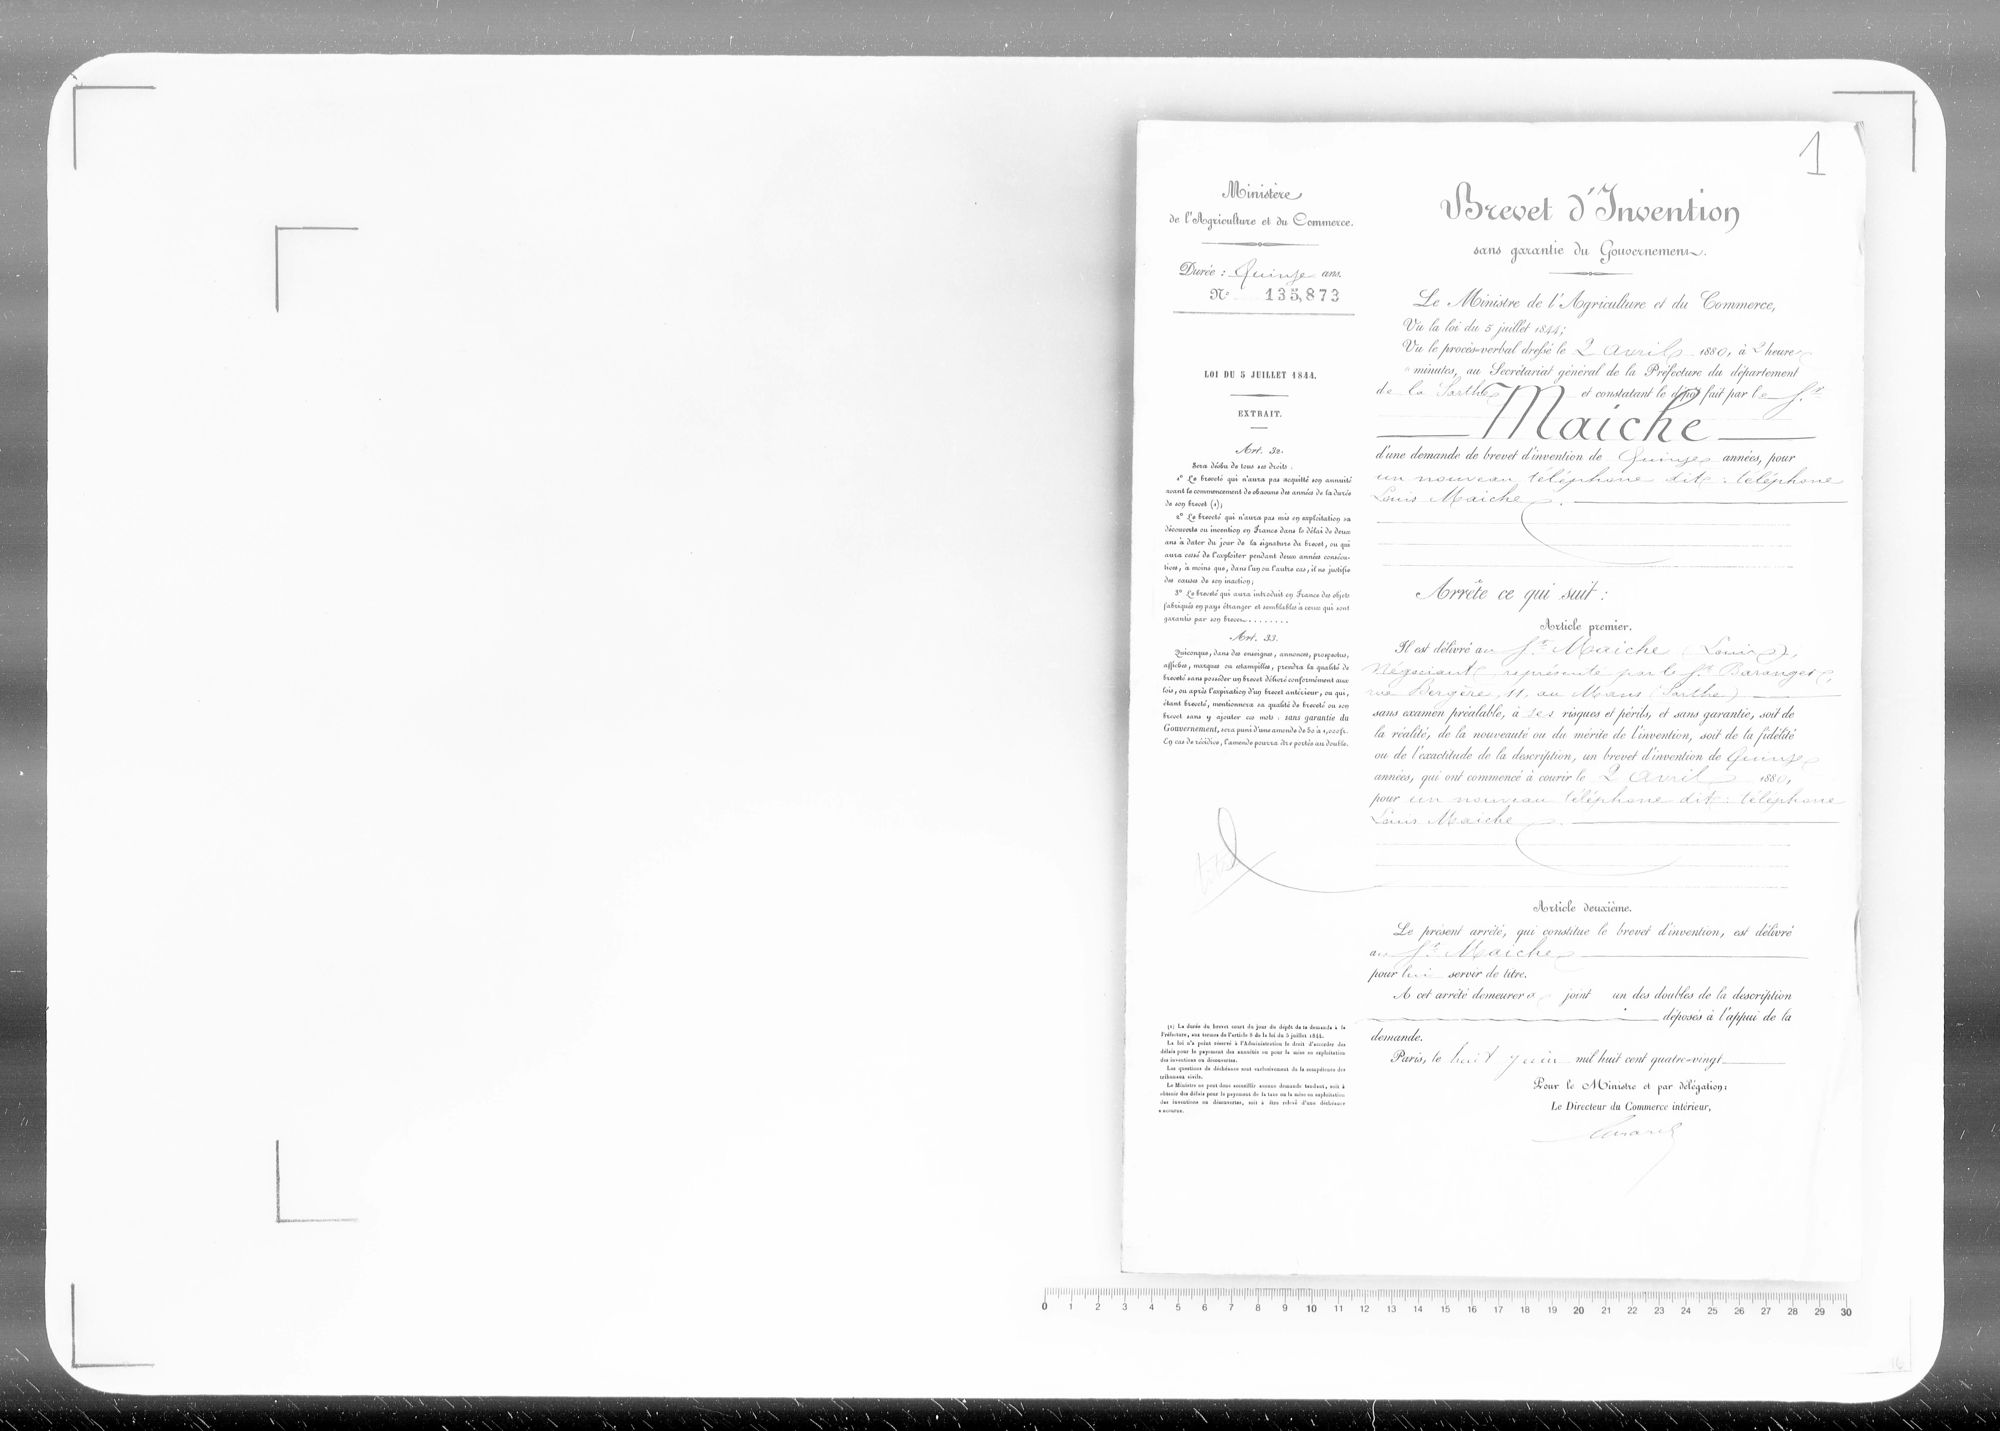 1
Ministère
de l'Agriculture et du Commerce.
Durée : Quinze ans.
N° 135,873
LOI DU 5 JUILLET 1844.
EXTRAIT.
Art. 32.
Sera déchu de tous ses droits :
1° Le breveté qui n'aura pas acquitté son annuité
avant le commencement de chacune des années de la durée
de son brevet (1);
2° Le breveté qui n'aura pas mis en exploitation sa
découverte ou invention en France dans le délai de deux
ans à dater du jour de la signature du brevet, ou qui
aura cessé de l'exploiter pendant deux années consécu-
tives, à moins que, dans l'un ou l'autre cas, il ne justifie
des causes de son inaction;
3° Le breveté qui aura introduit en France des objets
fabriqués en pays étranger et semblables à ceux qui sont
garantis par son brevet........
Art. 33.
Quiconque, dans des enseignes, annonces, prospectus,
affiches, marques ou estampilles, prendra la qualité de
breveté sans posséder un brevet délivré conformément aux
lois, ou après l'expiration d'un brevet antérieur, ou qui,
étant breveté, mentionnera sa qualité de breveté ou son
brevet sans y ajouter ces mots : sans garantie du
Gouvernement, sera puni d'une amende de 50 à 1,000 fr.
En cas de récidive, l'amende pourra être portée au double.
(1) La durée du brevet court du jour du dépôt de la demande à la
Préfecture, aux termes de l'article 8 de la loi du 5 juillet 1844.
La loi n'a point réservé à l'Administration le droit d'accorder des
délais pour le payement des annuités ou pour la mise en exploitation
des inventions ou découvertes.
Les questions de déchéance sont exclusivement de la compétence des
tribunaux civils.
Le Ministre ne peut donc accueillir aucune demande tendant, soit à
obtenir des délais pour le payement de la taxe ou la mise en exploitation
des inventions ou découvertes, soit à être relevé d'une déchéance
encourue.
Brevet d'Invention
sans garantie du Gouvernement.
Le Ministre de l'Agriculture et du Commerce,
Vu la loi du 5 juillet 1844;
Vu le procès-verbal dressé le 2 avril 1880, à 2 heures
" minutes, au Secrétariat général de la Préfecture du département
de la Sarthe et constatant le dépôt fait par le Sr
Maiche
d'une demande de brevet d'invention de Quinze années, pour
un nouveau téléphone dit : téléphone
Louis Maiche.
Arrête ce qui suit :
Article premier.
Il est délivré au Sr Maiche (Louis),
Négociant, représenté par le Sr Baranger,
rue Bergère, 11, au Mans (Sarthe)
sans examen préalable, à ses risques et périls, et sans garantie, soit de
la réalité, de la nouveauté ou du mérite de l'invention, soit de la fidélité
ou de l'exactitude de la description, un brevet d'invention de Quinze
années, qui ont commencé à courir le 2 avril 1880,
pour un nouveau téléphone dit : téléphone
Louis Maiche.
Article deuxième.
Le présent arrêté, qui constitue le brevet d'invention, est délivré
au Sr Maiche
pour lui servir de titre.
A cet arrêté demeurera joint un des doubles de la description
déposés à l'appui de la
demande.
Paris, le huit juin mil huit cent quatre-vingt
Pour le Ministre et par délégation :
Le Directeur du Commerce intérieur,
0 1 2 3 4 5 6 7 8 9 10 11 12 13 14 15 16 17 18 19 20 21 22 23 24 25 26 27 28 29 30